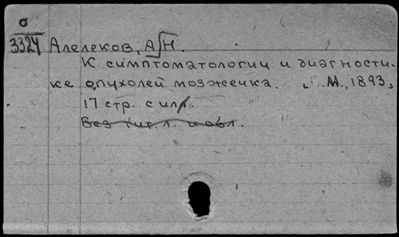 о
3324 Алелеков, А.Н.
К симптоматологии и диагности-
ке опухолей мозжечка. М., 1893,
17 стр. с илл.
Без тит. л. и обл.